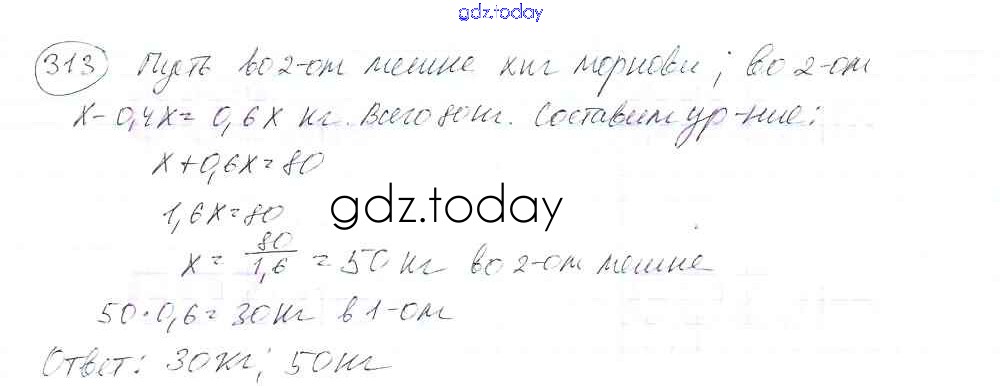 gdz.today
313 Пусть во 2-ом мешке x кг моркови; во 2-ом
x - 0,4x = 0,6x кг. Всего 80 кг. Составим ур-ние:
x + 0,6x = 80
1,6x = 80
gdz.today
x = 80/1,6 = 50 кг во 2-ом мешке
50 · 0,6 = 30 кг в 1-ом
Ответ: 30 кг; 50 кг